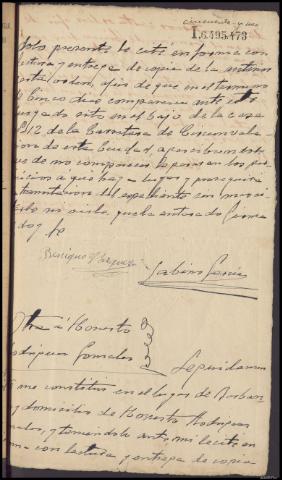 cincuenta y uno
L6.495.478
presente le cité en forma con
lectura y entrega de copia de la anterior
orden, afin de que en el termino
de Cinco dias comparezca ante este
Juzgado sito en el bajo de la casa
nº12 de la Carretera de Circunvala
cion de esta Ciudad, apercibiendole
que de no comparecer le parara los per
juicios a que haya lugar y proseguirá
tramitacion del expediente sin mas ci
tarlo ni oirlo, queda enterado firma
doy fe
Benigno Vazquez
Sabino
Otra á Honorto
Rodriguez Gonzalez
Seguidamen
te me constitui en el lugar de
y domicilio de Honorto Rodriguez
y teniendolo ante mi le cite en
forma con lectura y entrega de copia